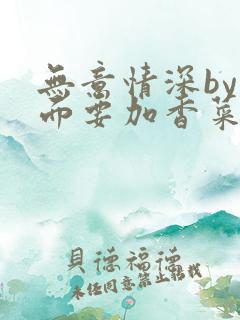 無意情深by
而要加香菜
貝德福德
未经同意禁止转载